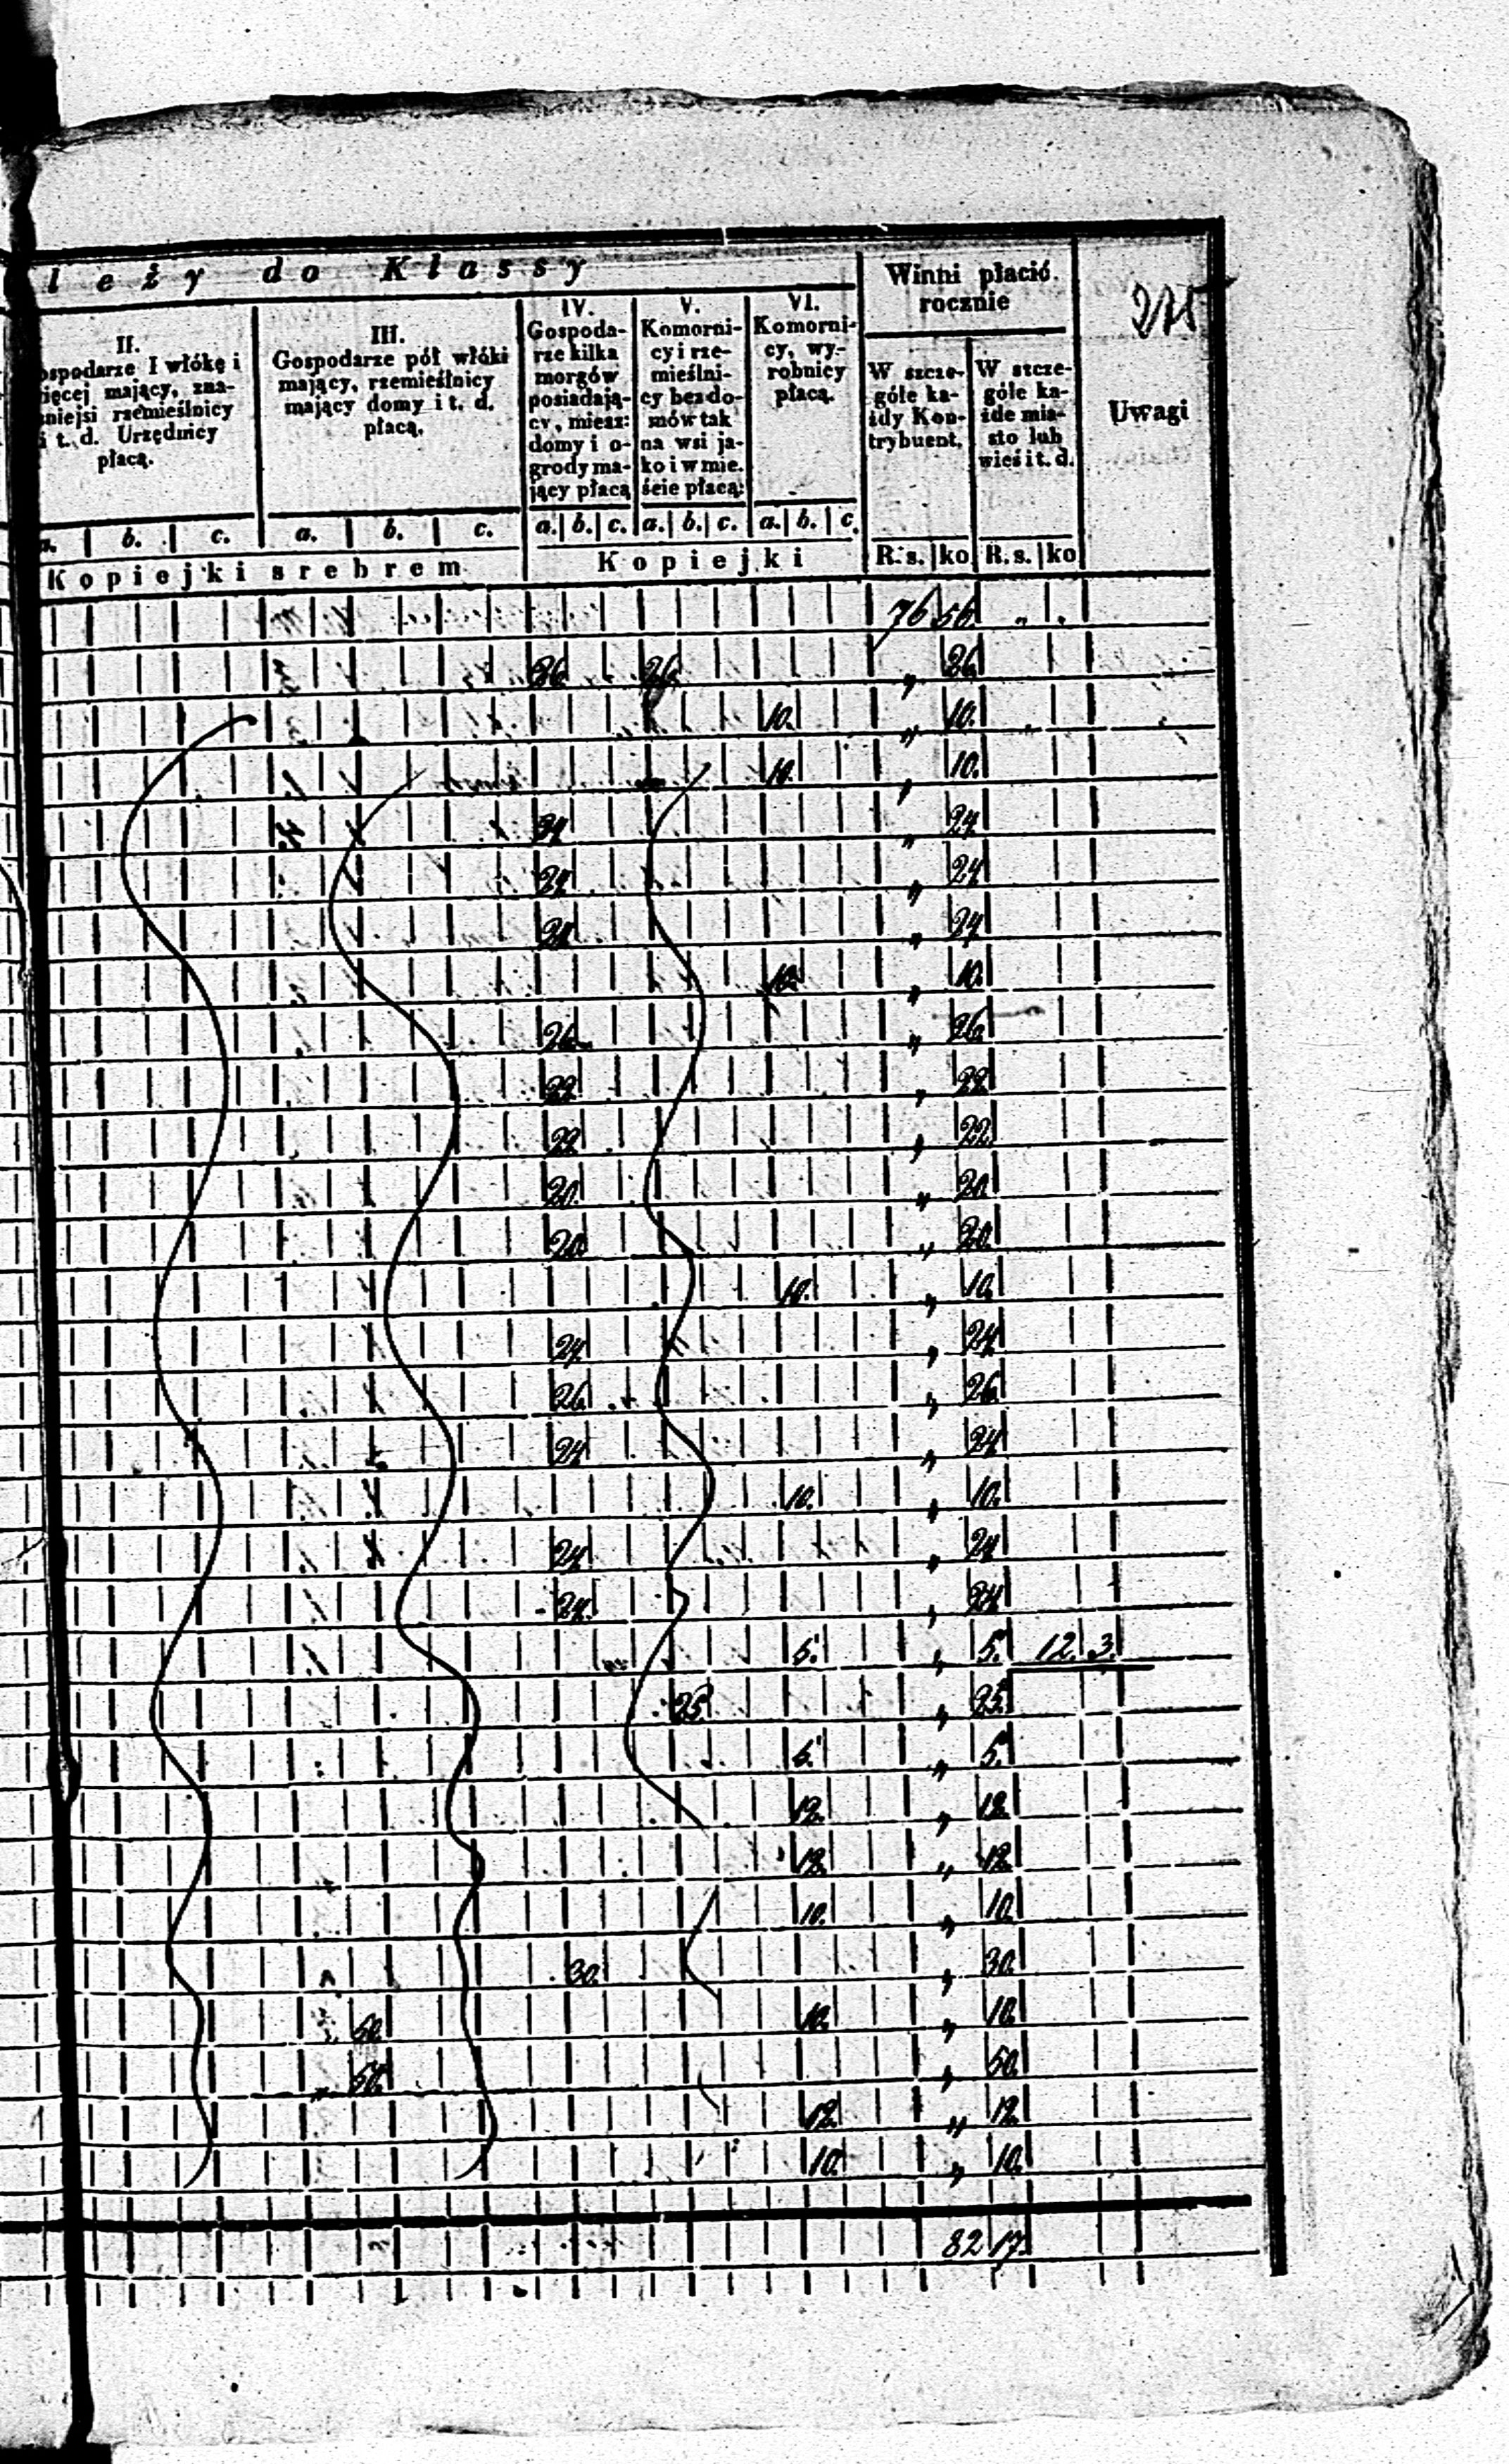 leży do Klassy
Winni płacić
rocznie
275
II.
ospodarze I włókę i
ięcej mający, zna-
niejsi rzemieślnicy
i t. d. Urzędnicy
płacą.
III.
Gospodarze pół włóki
mający, rzemieślnicy
mający domy i t. d.
płacą.
IV.
Gospoda-
rze kilka
morgów
posiadają-
cy, miesz:
domy i o-
grody ma-
jący płacą
V.
Komorni-
cy i rze-
mieślni-
cy bez do-
mów tak
na wsi ja-
ko i w mie.
ście płacą:
VI.
Komorni-
cy, wy-
robnicy
płacą.
W szcze-
góle ka-
żdy Kon-
trybuent.
W szcze-
góle ka-
żde mia-
sto lub
wieś i t. d.
Uwagi
a. b. c. a. b. c. a. b. c. a. b. c. a. b. c.
Kopiejki srebrem Kopiejki R. s. ko R. s. ko
76 56 " "
26. 26. " 26.
10. " 10.
10. " 10.
24 " 24
24 " 24
24 " 24
10. " 10.
26. " 26.
22 " 22
22 " 22
20. " 20.
20. " 20.
10. " 10.
24 " 24
26. " 26.
24 " 24
10. " 10.
24 " 24
24. " 24
5. " 5. 12. 3.
25 " 25.
5. " 5.
12. " 12.
12. " 12.
10. " 10.
30. " 30.
50. 10. " 10.
50. " 50.
12. " 12.
10. " 10.
82 17.